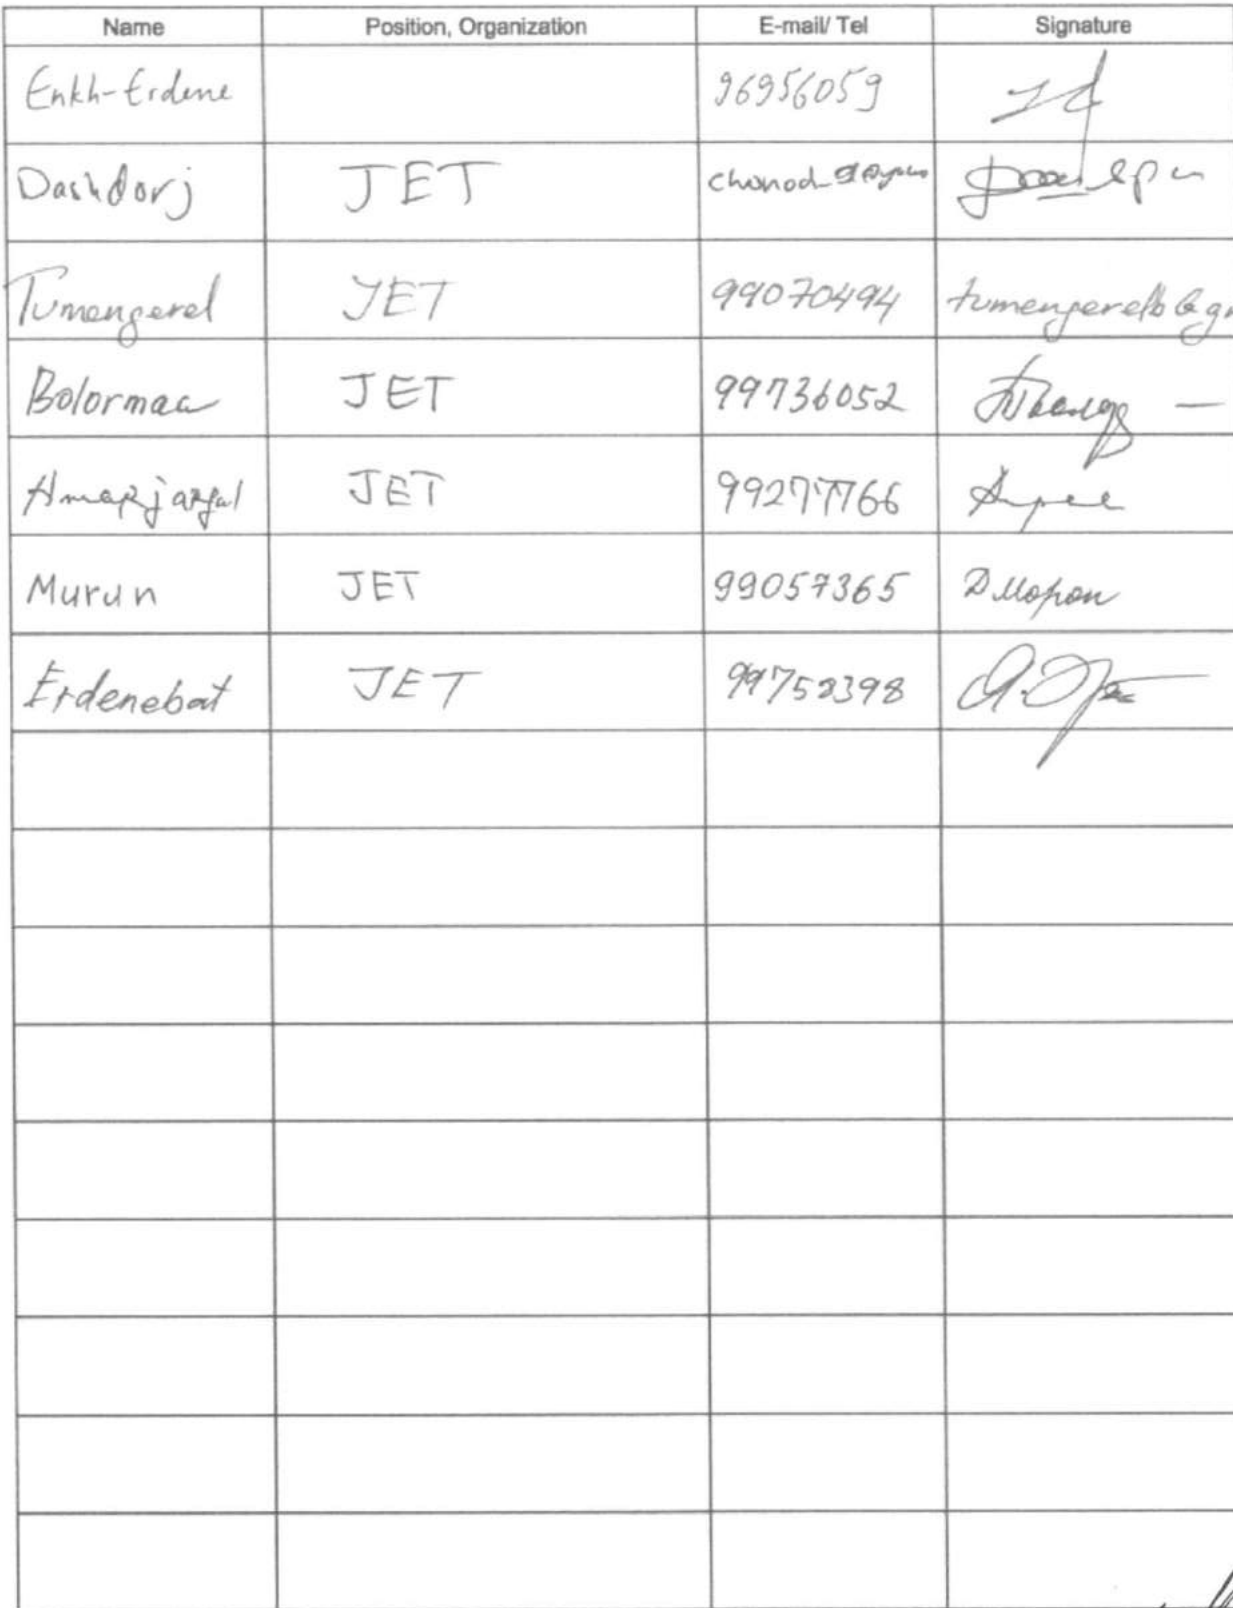 Name Position, Organization E-mail/ Tel Signature
Enkh-Erdene 96956059
Dashdorj JET
Tumengerel JET 99070494 tumengerelb@gm
Bolormaa JET 99736052
Amarjargal JET 99277766
Murun JET 99057365 Д Морон
Erdenebat JET 99758398